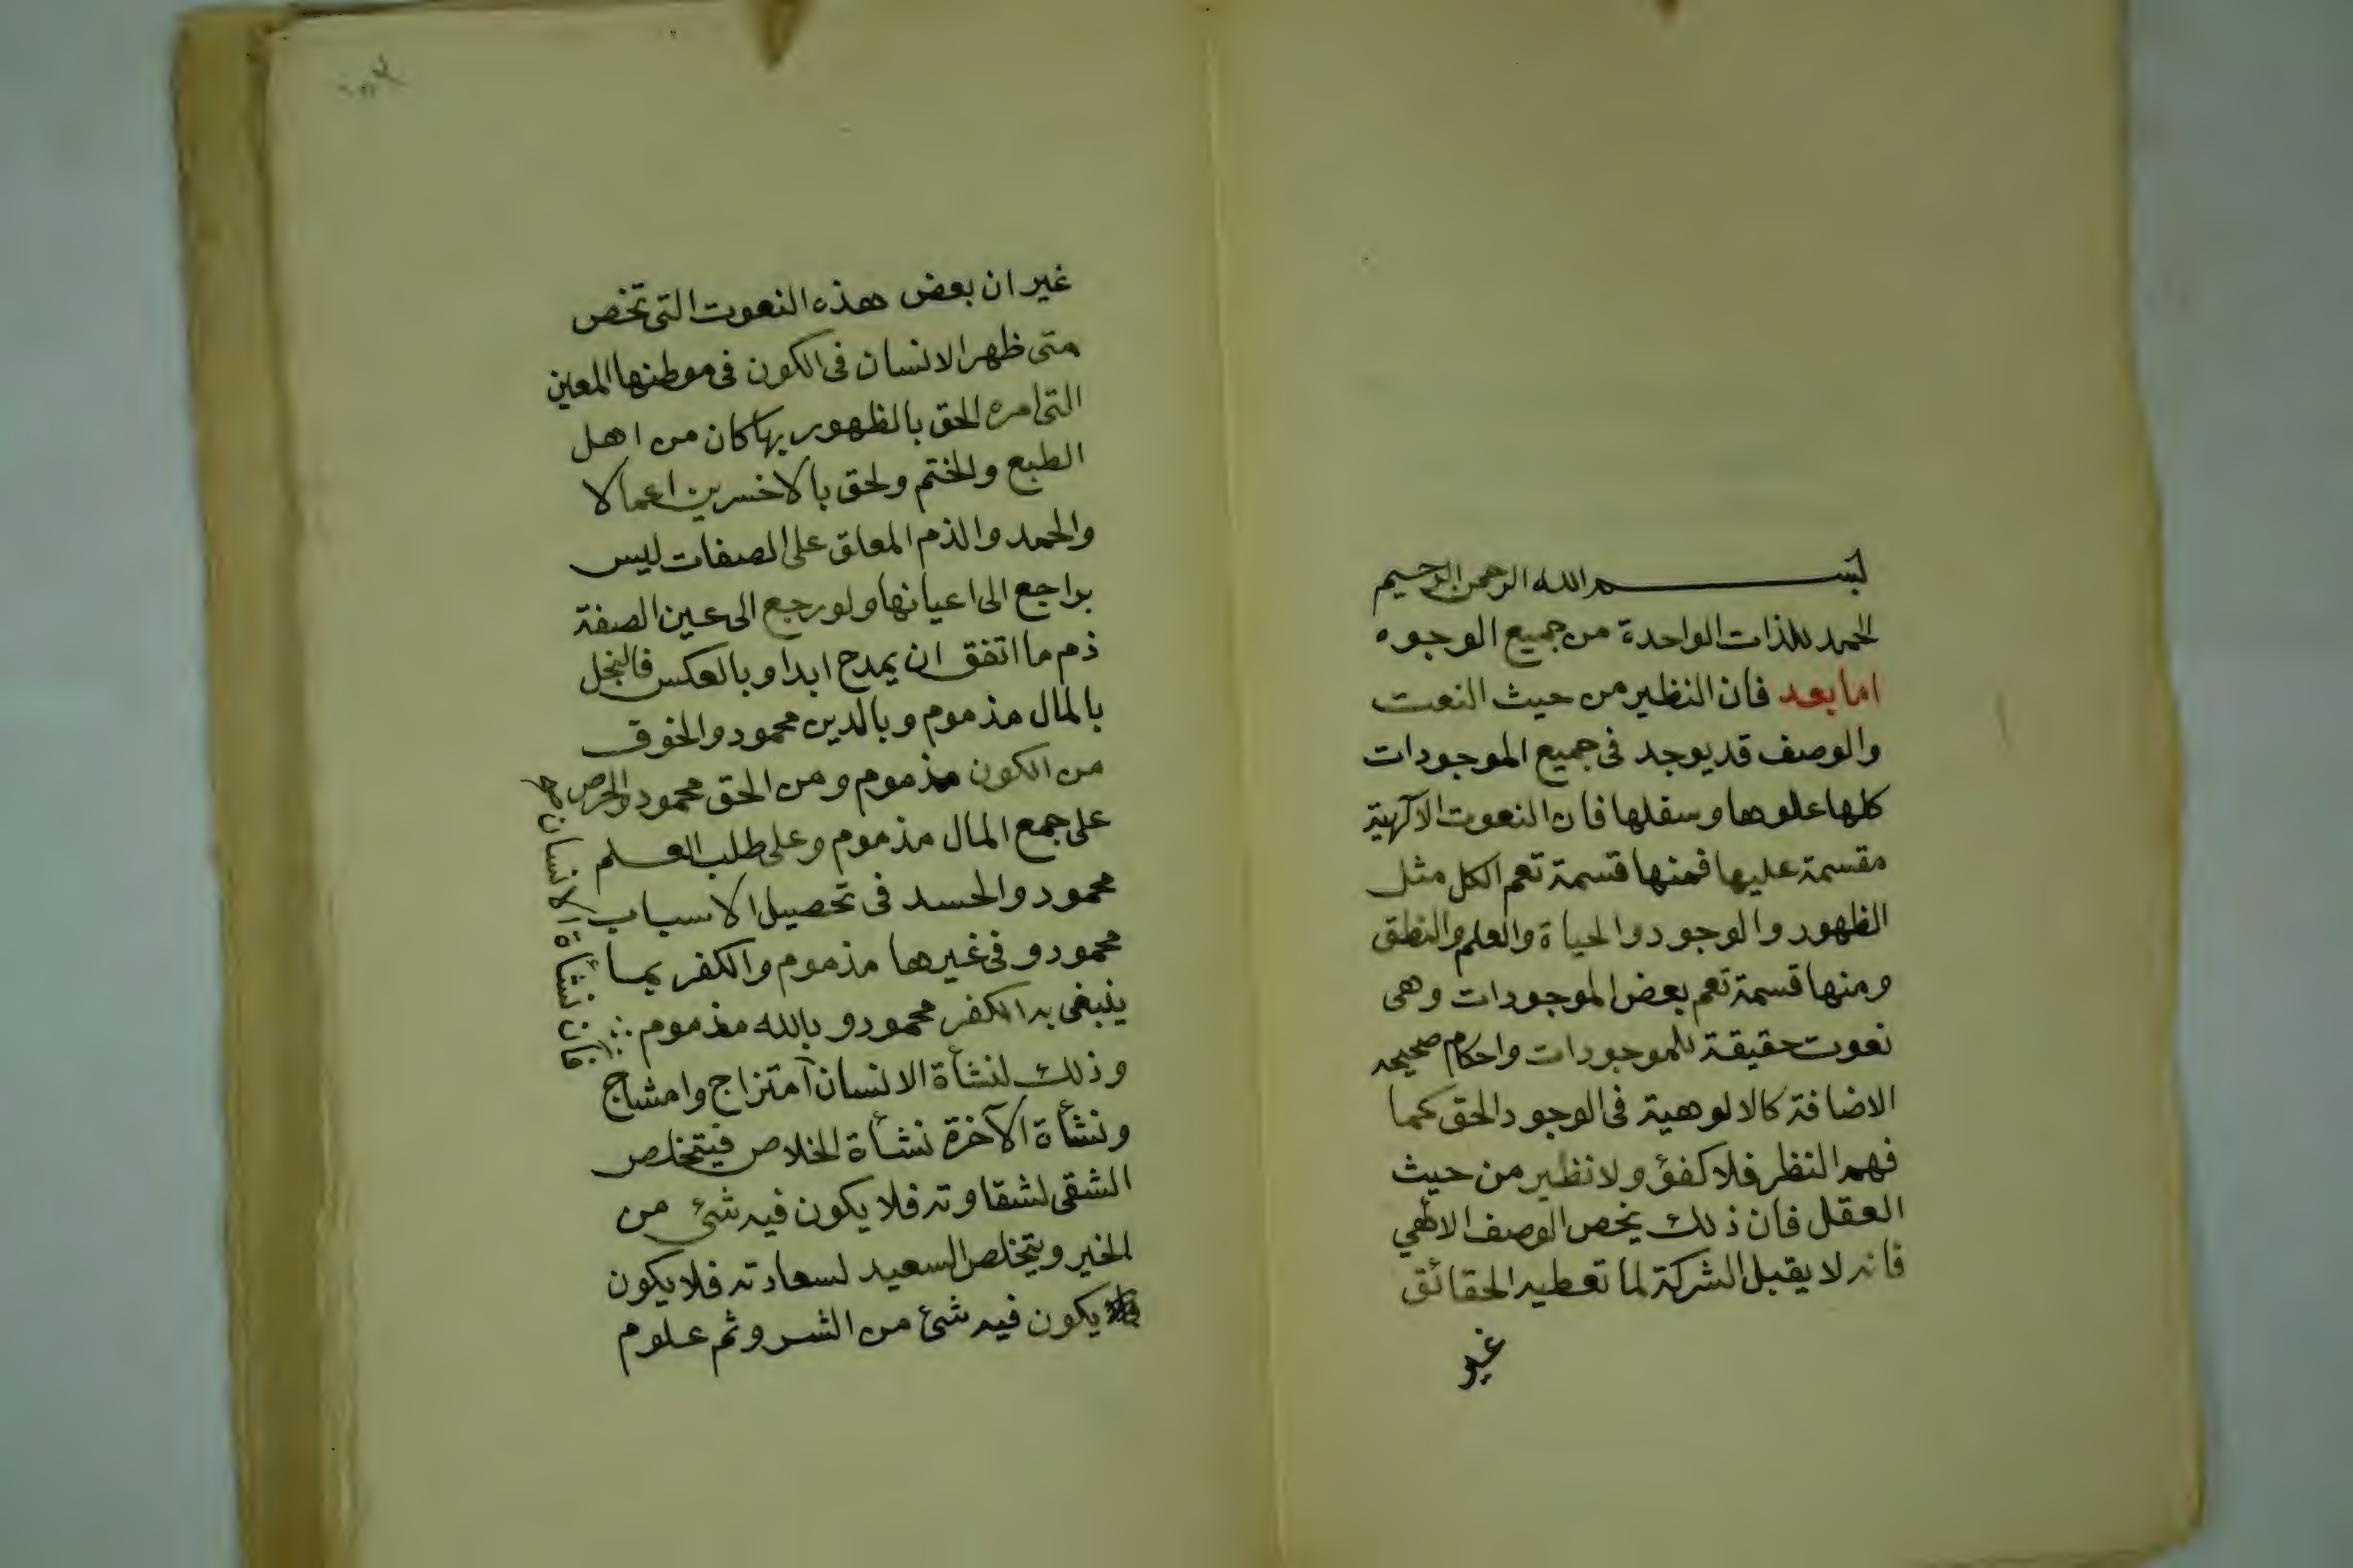 بسم الله الرحمن الرحيم
الحمد للذات الواحدة من جميع الوجوه
اما بعد فان النظير من حيث النعت
والوصف قد يوجد فى جميع الموجودات
كلها علوها وسفلها فان النعوت الآلهية
مقسمة عليها فمنها قسمة تعم الكل مثل
الظهور والوجود والحياة والعلم والنطق
ومنها قسمة تعم بعض الموجودات وهى
نعوت حقيقة للموجودات واحكام صحيحه
الاضافة كالالوهية فى الوجود الحق كما
فهم النظر فلا كفؤ ولا نظير من حيث
العقل فان ذلك يخص الوصف الالهي
فانه لا يقبل الشركة لما تعطيه الحقائق
غير
غير ان بعض هذه النعوت التى تخص
متى ظهر الانسان فى الكون فى موطنها المعين
التى امره الحق بالظهور بها كان من اهل
الطبع والختم ولحق بالاخسرين اعمالا
والحمد والذم المعلق على الصفات ليس
براجع الى اعيانها ولو رجع الى عين الصفة
ذم ما اتفق ان يمدح ابدا وبالعكس فالبخل
بالمال مذموم وبالدين محمود والخوف
من الكون مذموم ومن الحق محمود والحرص
على جمع المال مذموم وعلى طلب العلم
محمود والحسد فى تحصيل الاسباب
محمود وفى غيرها مذموم والكفر بما
ينبغى به الكفر محمود وبالله مذموم
وذلك لنشأة الانسان امتزاج وامشاج
ونشأة الآخرة نشأة الخلاص فيتخلص
الشقى لشقاوته فلا يكون فيه شئ من
الخير ويتخلص السعيد لسعادته فلا يكون
يكون فيه شئ من الشر وثم علوم
فان نشأة الانسان